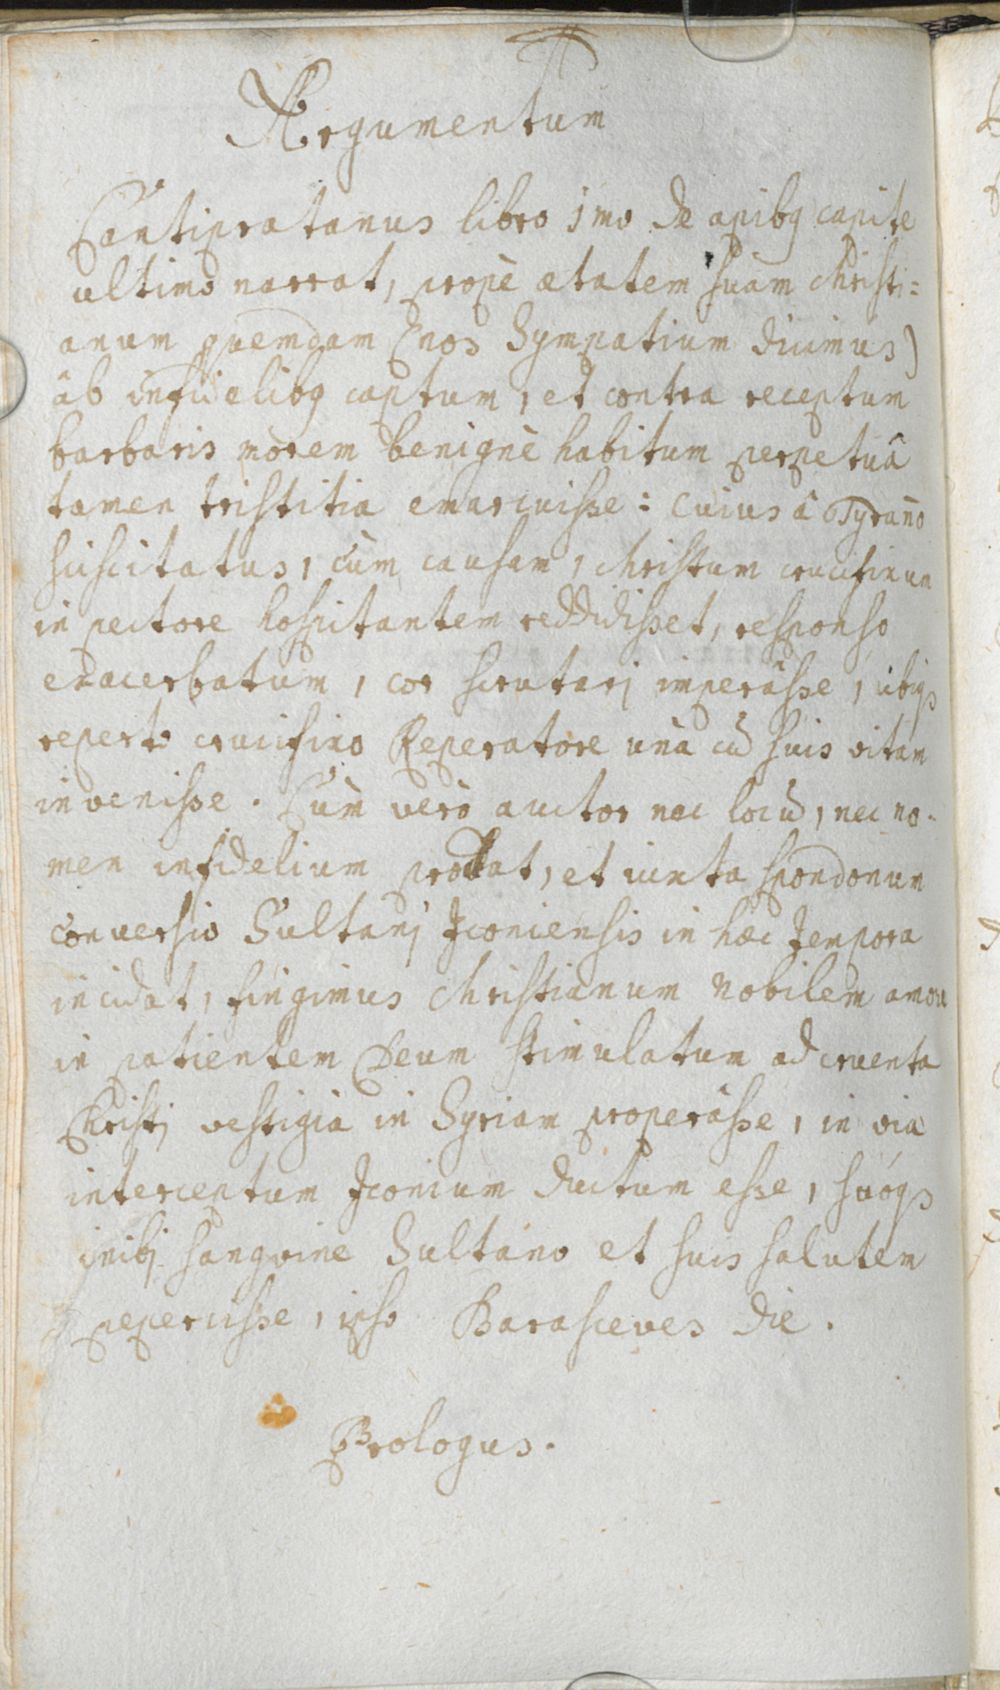 Argumentum
Cantipratanus libro jmo de apibq capite
ultimo narrat, propè ætatem suam Christi=
anum quemdam (nos Sympatium dicimus)
âb infidelibq captum, et contra receptum
barbaris mòrem benignè habitum perpetuâ
tamen tristitia emarcuisse: Cuius â Tyrano
suscitatus, cùm causam, Christum crucifixum
in pectore hospitantem reddidisset, responso
exacerbatum, cor scrutarj imperâsse, ibiqs
reperto crucifixo Reperatore unà cū suis vitam
invenisse. Cùm verò auctor nec locū, nec no-
men infidelium prodat, et iuxta Spondanum
conversio Sultanj Jconiensis in hæc Tempora
incidat, fingimus Christianum nobilem amore
in patientem Deum stimulatum ad cruenta
Christj vestigia in Syriam properâsse, in via
interceptum Jconium ductum esse, suóqs
inibj sangvine Sultano et suis salutem
peperisse, ipso Parasceves die.
Prologus.